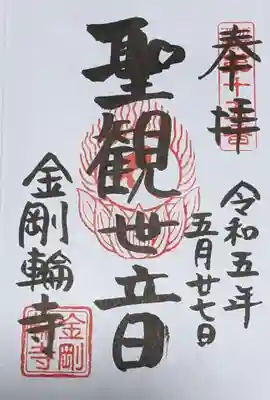 奉拝
令和五年
五月廿七日
聖観世音
金剛輪寺
金剛
輪寺